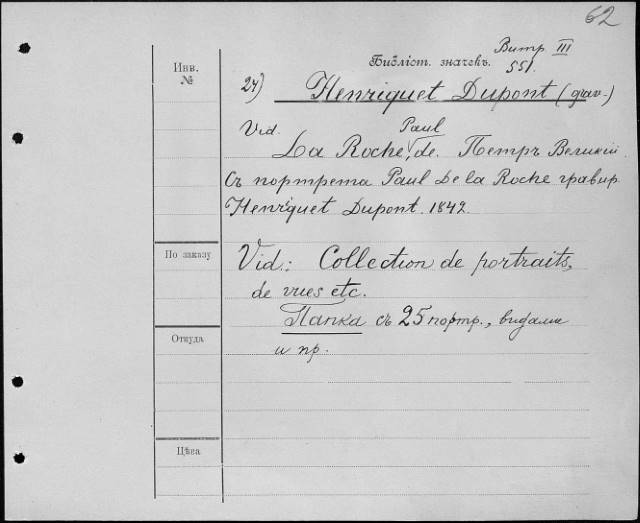 62
Витр. III
Инв.
№
Библіот. значекъ.
551.
24) Henriquet Dupont (грав.)
Vid.
Paul
La Roche, de. Петръ Великій.
Съ портрета Paul De la Roche гравир.
Henriquet Dupont. 1842.
По заказу
Vid.: Collection de portraits,
de vues etc.
Папка съ 25 портр., видами
Откуда
и пр.
Цѣна